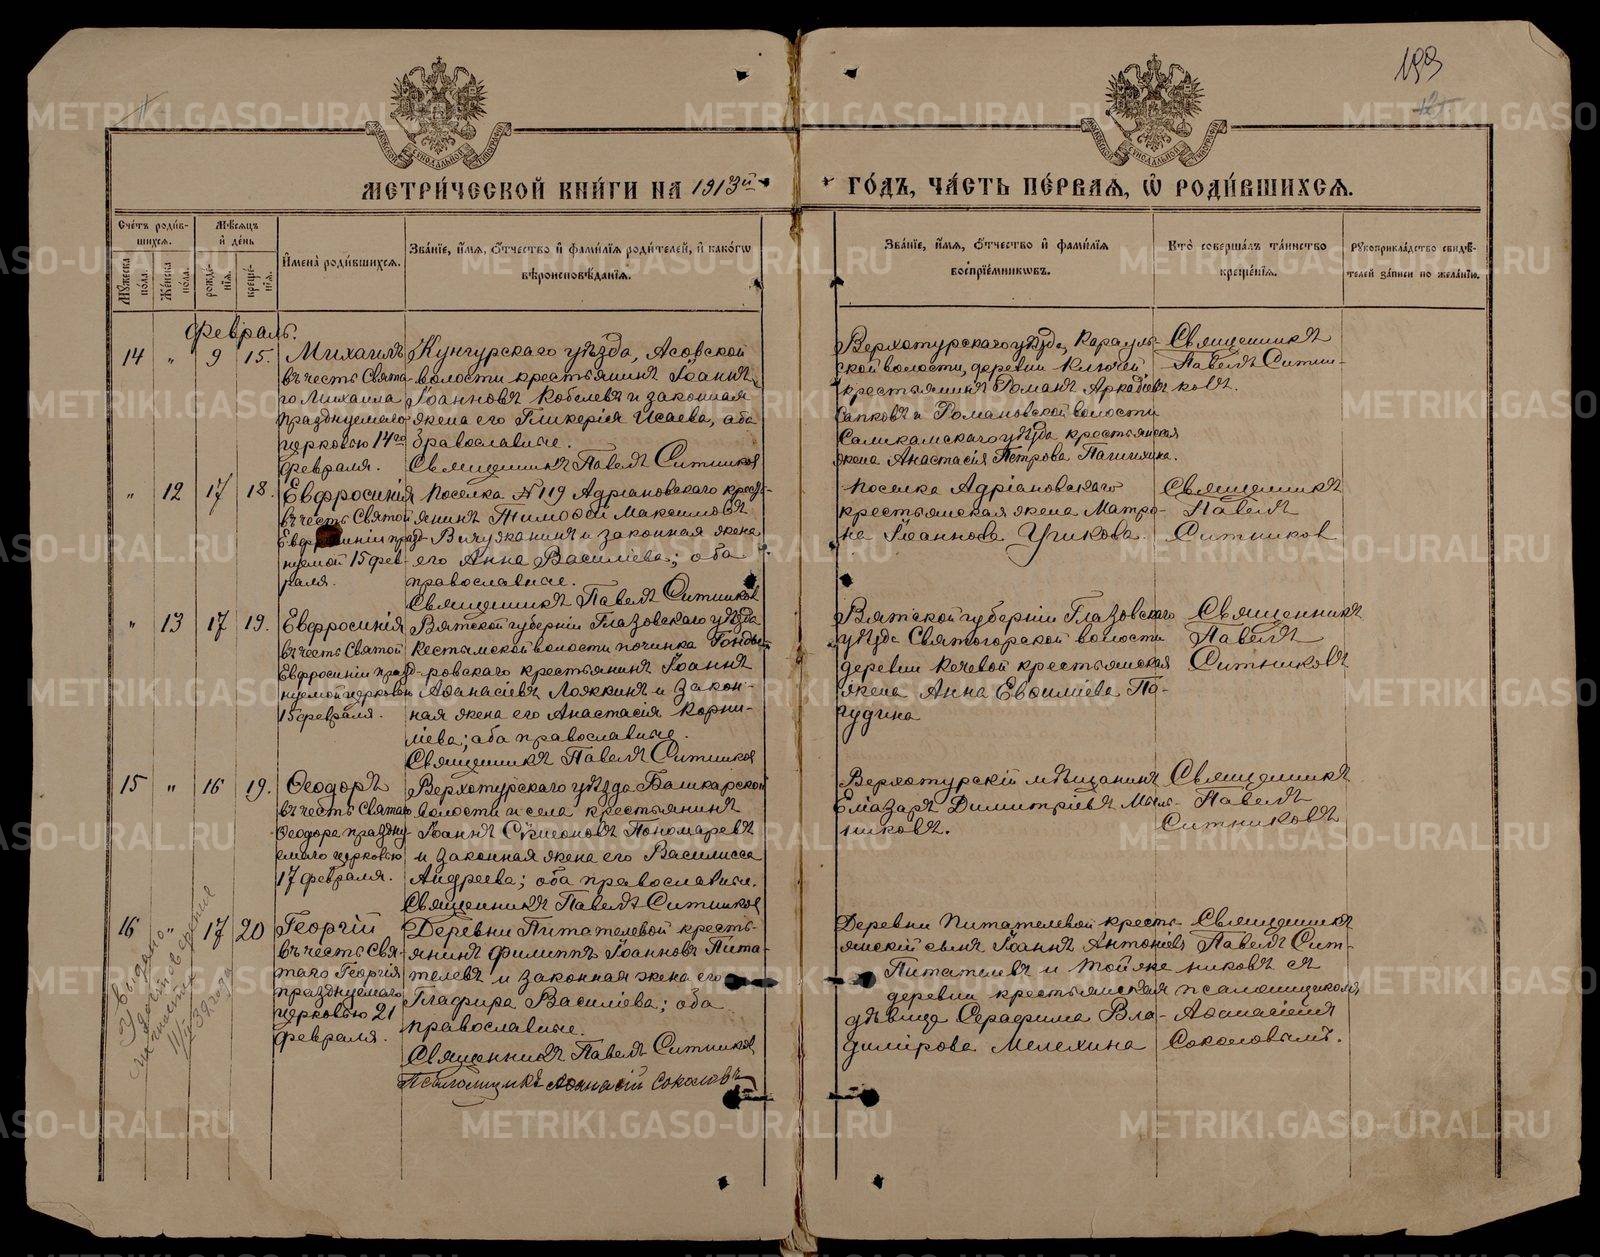 199
МОСКОВСКОЙ СѴНОДАЛЬНОЙ ТИПОГРАФІИ
МОСКОВСКОЙ СѴНОДАЛЬНОЙ ТИПОГРАФІИ
МЕТРИ́ЧЕСКОЙ КНИ́ГИ НА 1913й ГО́ДЪ, ЧА́СТЬ ПЕ́РВАѦ, Ѽ РОДИ́ВШИХСѦ.
Сче́тъ роди́в-
шихсѧ.
Мѣ́сѧцъ
и҆ де́нь
Му́жеска
по́ла.
Же́нска
по́ла.
рожде́-
нїѧ.
креще́-
нїѧ.
И҆мена̀ роди́вшихсѧ.
Зва́нїе, и҆́мѧ, ѻ҆́тчество и҆ фами́лїѧ роди́телей, и҆ како́гѡ
вѣроисповѣ́данїѧ.
Зва́нїе, и҆́мѧ, ѻ҆́тчество и҆ фами́лїѧ
воспрїе́мникѡвъ.
Кто̀ соверша́лъ та́инство
креще́нїѧ.
Рꙋкоприкла́дство свидѣ́-
телей за́писи по жела́нїю.
Февраль.
14 " 9 15.
Михаилъ
въ честь Свята-
го Михаила
празднуемаго
церковью 14го
февраля.
Кунгурскаго уѣзда, Асовской
волости крестьянинъ Іоаннъ
Іоанновъ Кобелевъ и законная
жена его Гликерія Исаева, оба
православные.
Священникъ Павелъ Ситников
Верхотурскаго уѣзда, Карауль-
ской волости, деревни Ключей
крестьянинъ Романъ Аркадіевъ
Сапковъ и Романовской волости
Соликамскаго уѣзда крестьянская
жена Анастасія Петрова
Священникъ
Павелъ Ситни-
ковъ.
" 12 17 18.
Евфросинія
въ честь Святой
Евфросиніи празд-
нуемой 15 фев-
раля.
Поселка №119 Адріановскаго кресть-
янинъ Тимофей Максимовъ
Вичужанинъ и законная жена
его Анна Васильева; оба
православные.
Священникъ Павелъ Ситников
Поселка Адріановскаго
крестьянская жена Матро-
на Іоаннова Чукова.
Священникъ
Павелъ
Ситников
" 13 17 19.
Евфросинія
въ честь Святой
Евфросиніи празд-
нуемой церковью
15 февраля.
Вятской губерніи Глазовскаго уѣзда
Кестымской волости починка Гонды-
ровскаго крестьянинъ Іоаннъ
Аѳанасіевъ Ложкинъ и закон-
ная жена его Анастасія Корни-
ліева; оба православные.
Священникъ Павелъ Ситников
Вятской губерніи Глазовскаго
уѣзда Святогорской волости
деревни Кечевой крестьянская
жена Анна Евѳиміева По-
гудина
Священникъ
Павелъ
Ситниковъ
15 " 16 19.
Ѳеодоръ
въ честь Святаго
Ѳеодора праздну-
емаго церковью
17 февраля.
Верхотурскаго уѣзда Башкарской
волости и села крестьянинъ
Іоаннъ Сѵмеоновъ Пономаревъ
и законная жена его Василисса
Андреева; оба православные.
Священникъ Павелъ Ситников
Верхотурскій мѣщанинъ
Елиазаръ Димитріевъ Мыль-
никовъ.
Священникъ
Павелъ
Ситниковъ
16 " 17 20
Георгій
въ честь Свя-
таго Георгія
празднуемаго
церковью 21
февраля.
Деревни Питателевой кресть-
янинъ Филиппъ Іоанновъ Пита-
телевъ и законная жена его
Глафира Васильева; оба
православные.
Священникъ Павелъ Ситников
Псаломщикъ Аѳанасій Соколовъ
Деревни Питателевой кресть-
янскій сынъ Іоаннъ Антоніевъ
Питателевъ и той же
деревни крестьянская
дѣвица Серафима Вла-
димірова Мелехина
Священникъ
Павелъ Сит-
никовъ съ
псаломщикомъ
Аѳанасіемъ
Соколовымъ.
Выдано